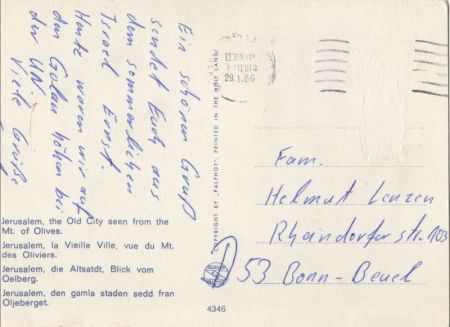 Ein schönen Gruß
sendet Euch aus
dem sommerlichen
Israel Ernst.
Heute waren wir auf
den Golan höhen bei
der UN.
Viele Grüße
29.1.86
COPYRIGHT BY "PALPHOT" PRINTED IN THE HOLY LAND
Fam.
Helmut Lenzen
Rheindorferstr. 103
D 53 Bonn-Beuel
Jerusalem, the Old City seen from the
Mt. of Olives.
Jerusalem, la Vieille Ville, vue du Mt.
des Oliviers.
Jerusalem, die Altsatdt, Blick vom
Oelberg.
Jerusalem, den gamla staden sedd fran
Oljeberget.
4346